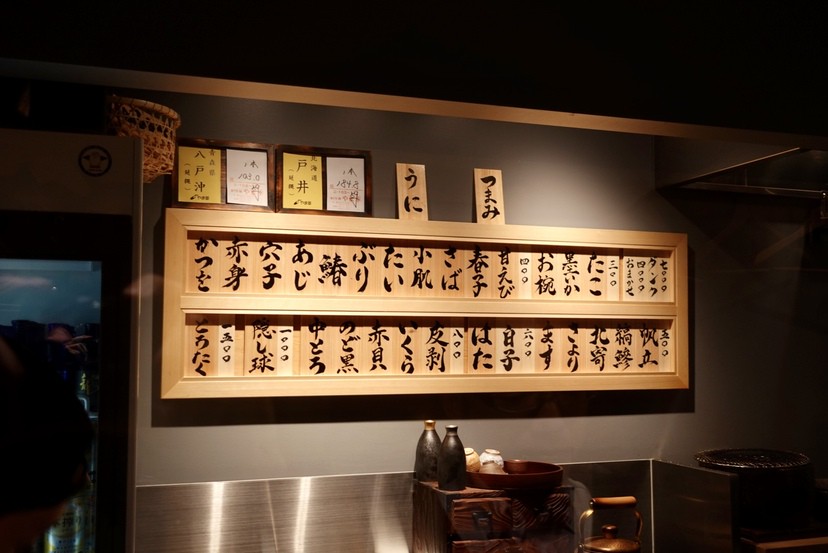 つまみ
うに
北海道
戸井
（延縄）
やま幸
八戸沖
（延縄）
やま幸
七〇〇〇
四〇〇〇
おまかせ
三〇〇
たこ
墨いか
お椀
四〇〇
甘えび
春子
さば
小肌
たい
ぶり
鰆
あじ
穴子
赤身
かつを
五〇〇
帆立
縞鯵
北寄
さより
ます
六〇〇
白子
はた
八〇〇
皮剥
いくら
赤貝
のど黒
中とろ
一〇〇〇
隠し球
一五〇〇
とろたく